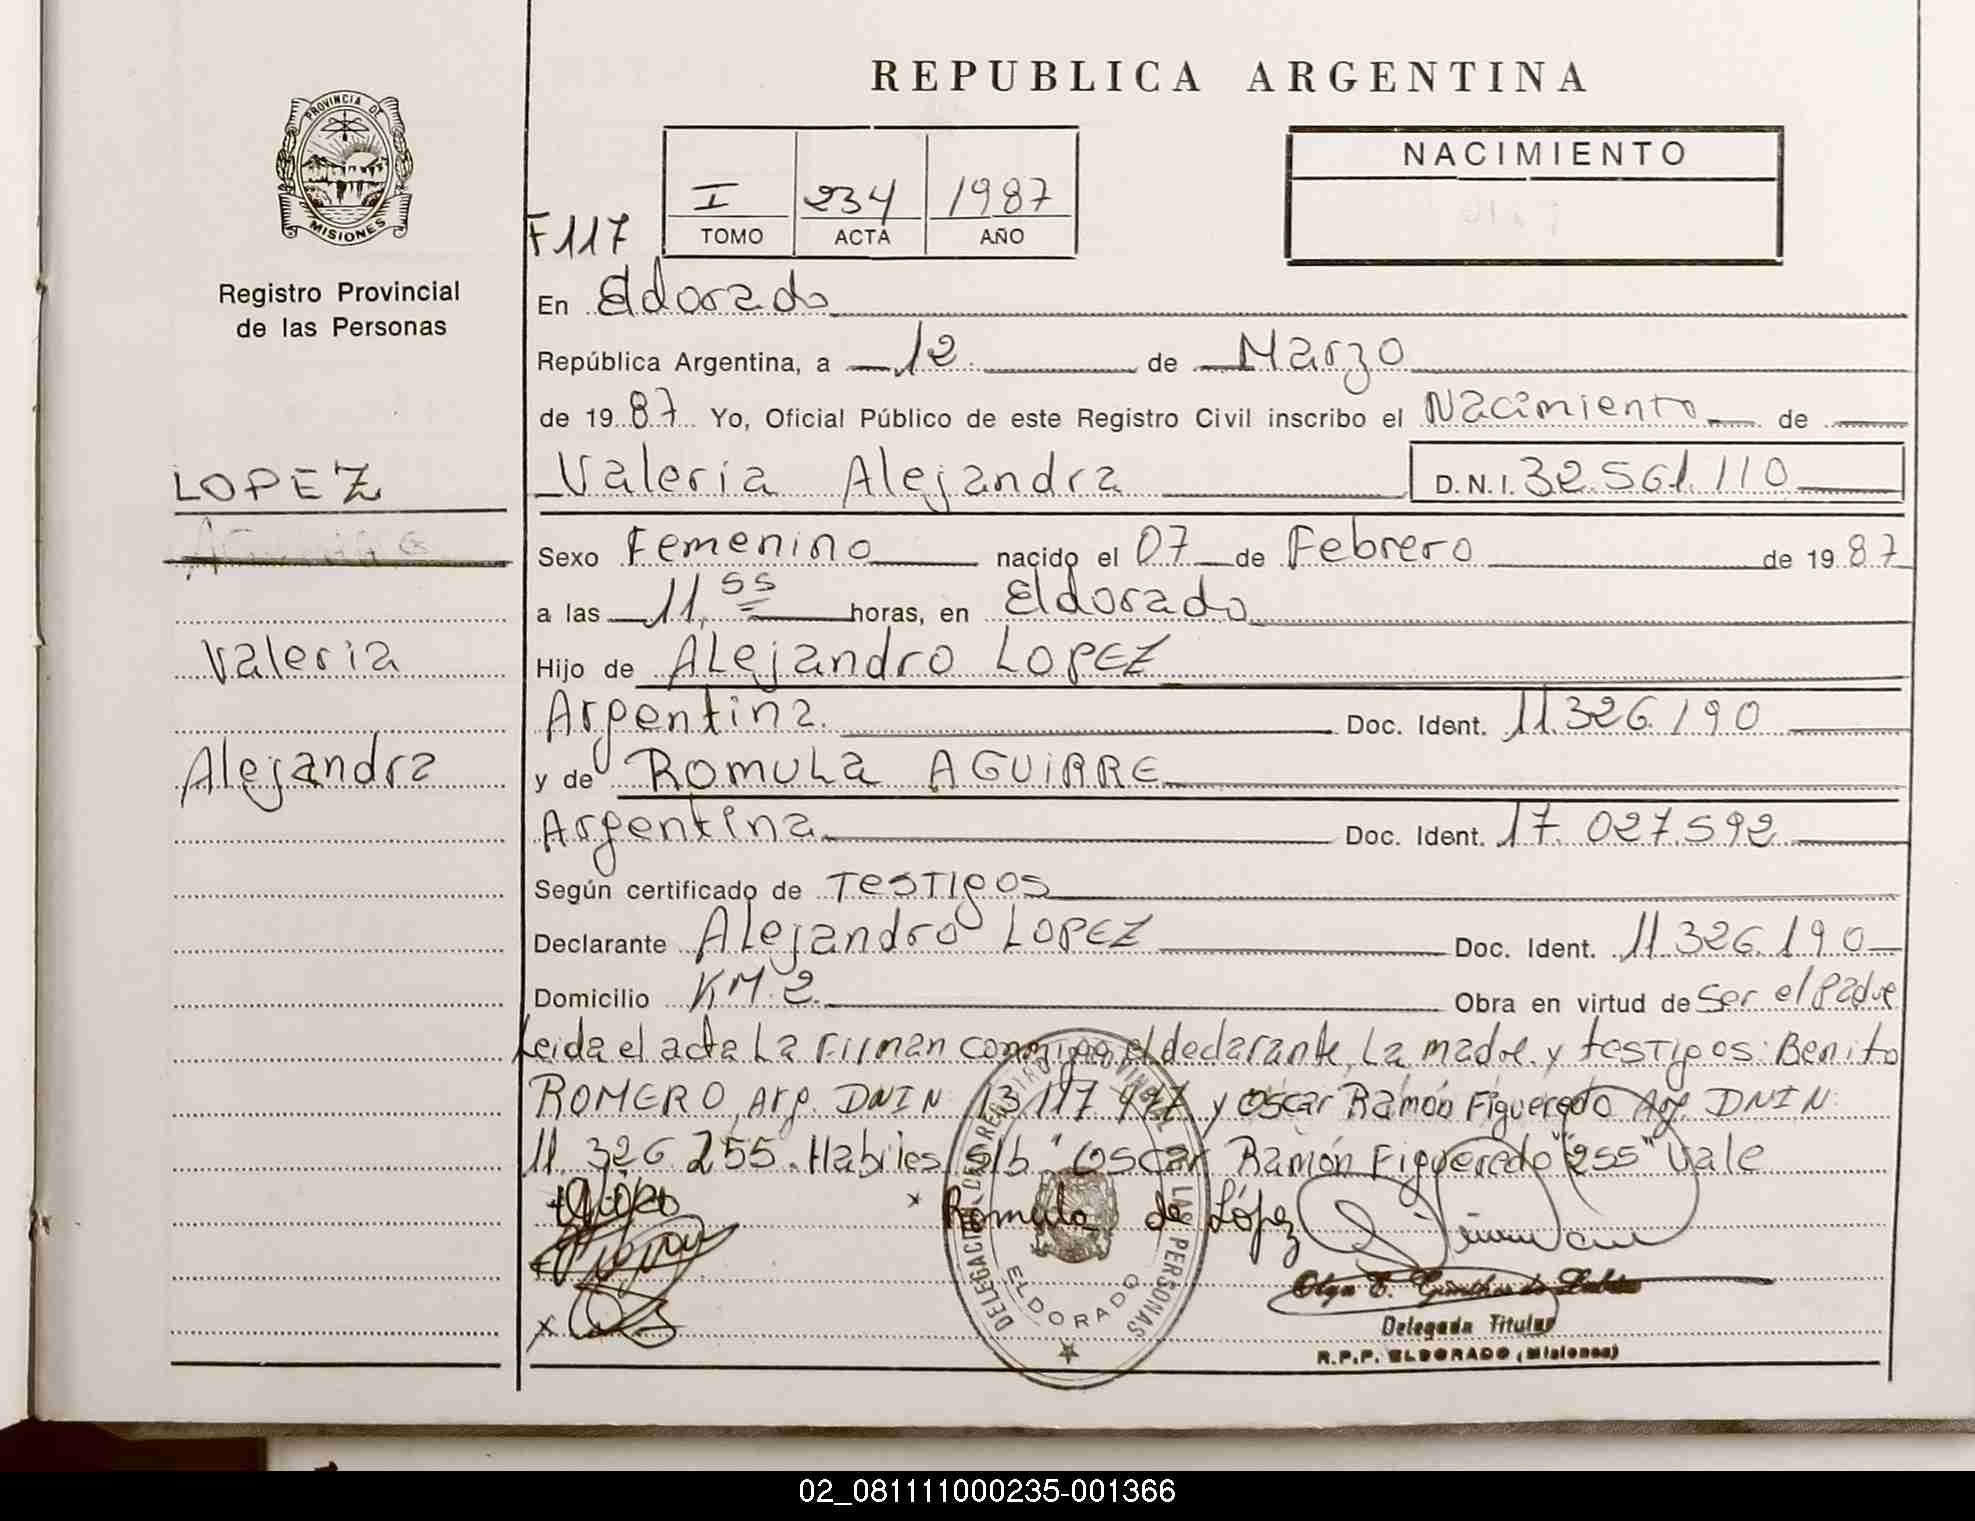 REPUBLICA ARGENTINA
PROVINCIA DE
MISIONES
Registro Provincial
de las Personas
F117
I 234 1987
TOMO ACTA AÑO
NACIMIENTO
En Eldorado
República Argentina, a 12 de Marzo
de 1987 Yo, Oficial Público de este Registro Civil inscribo el Nacimiento de
LOPEZ
Valeria Alejandra D.N.I. 32.561.110
Sexo Femenino nacido el 07 de Febrero de 1987
a las 11,55 horas, en Eldorado
Valeria
Hijo de Alejandro LOPEZ
Argentina. Doc. Ident. 11.326.190
Alejandra
y de ROMULA AGUIRRE
Argentina Doc. Ident. 17.027.592
Según certificado de Testigos
Declarante Alejandro LOPEZ Doc. Ident. 11.326.190
Domicilio KM.2. Obra en virtud de Ser el Padre
Leida el acta La Firman conmigo el declarante, La madre y testigos: Benito
ROMERO, Arg. DNIN 13.117. y Oscar Ramón Figueredo Arg. DNIN:
11.326.255. Habiles s/b "Oscar Ramón Figueredo" "255" Vale
Romula de López
DELEGACION DEL REGISTRO PROVINCIAL DE LAS PERSONAS
ELDORADO
Olga E.
Delegada Titular
R.P.P. ELDORADO (Misiones)
02_081111000235-001366